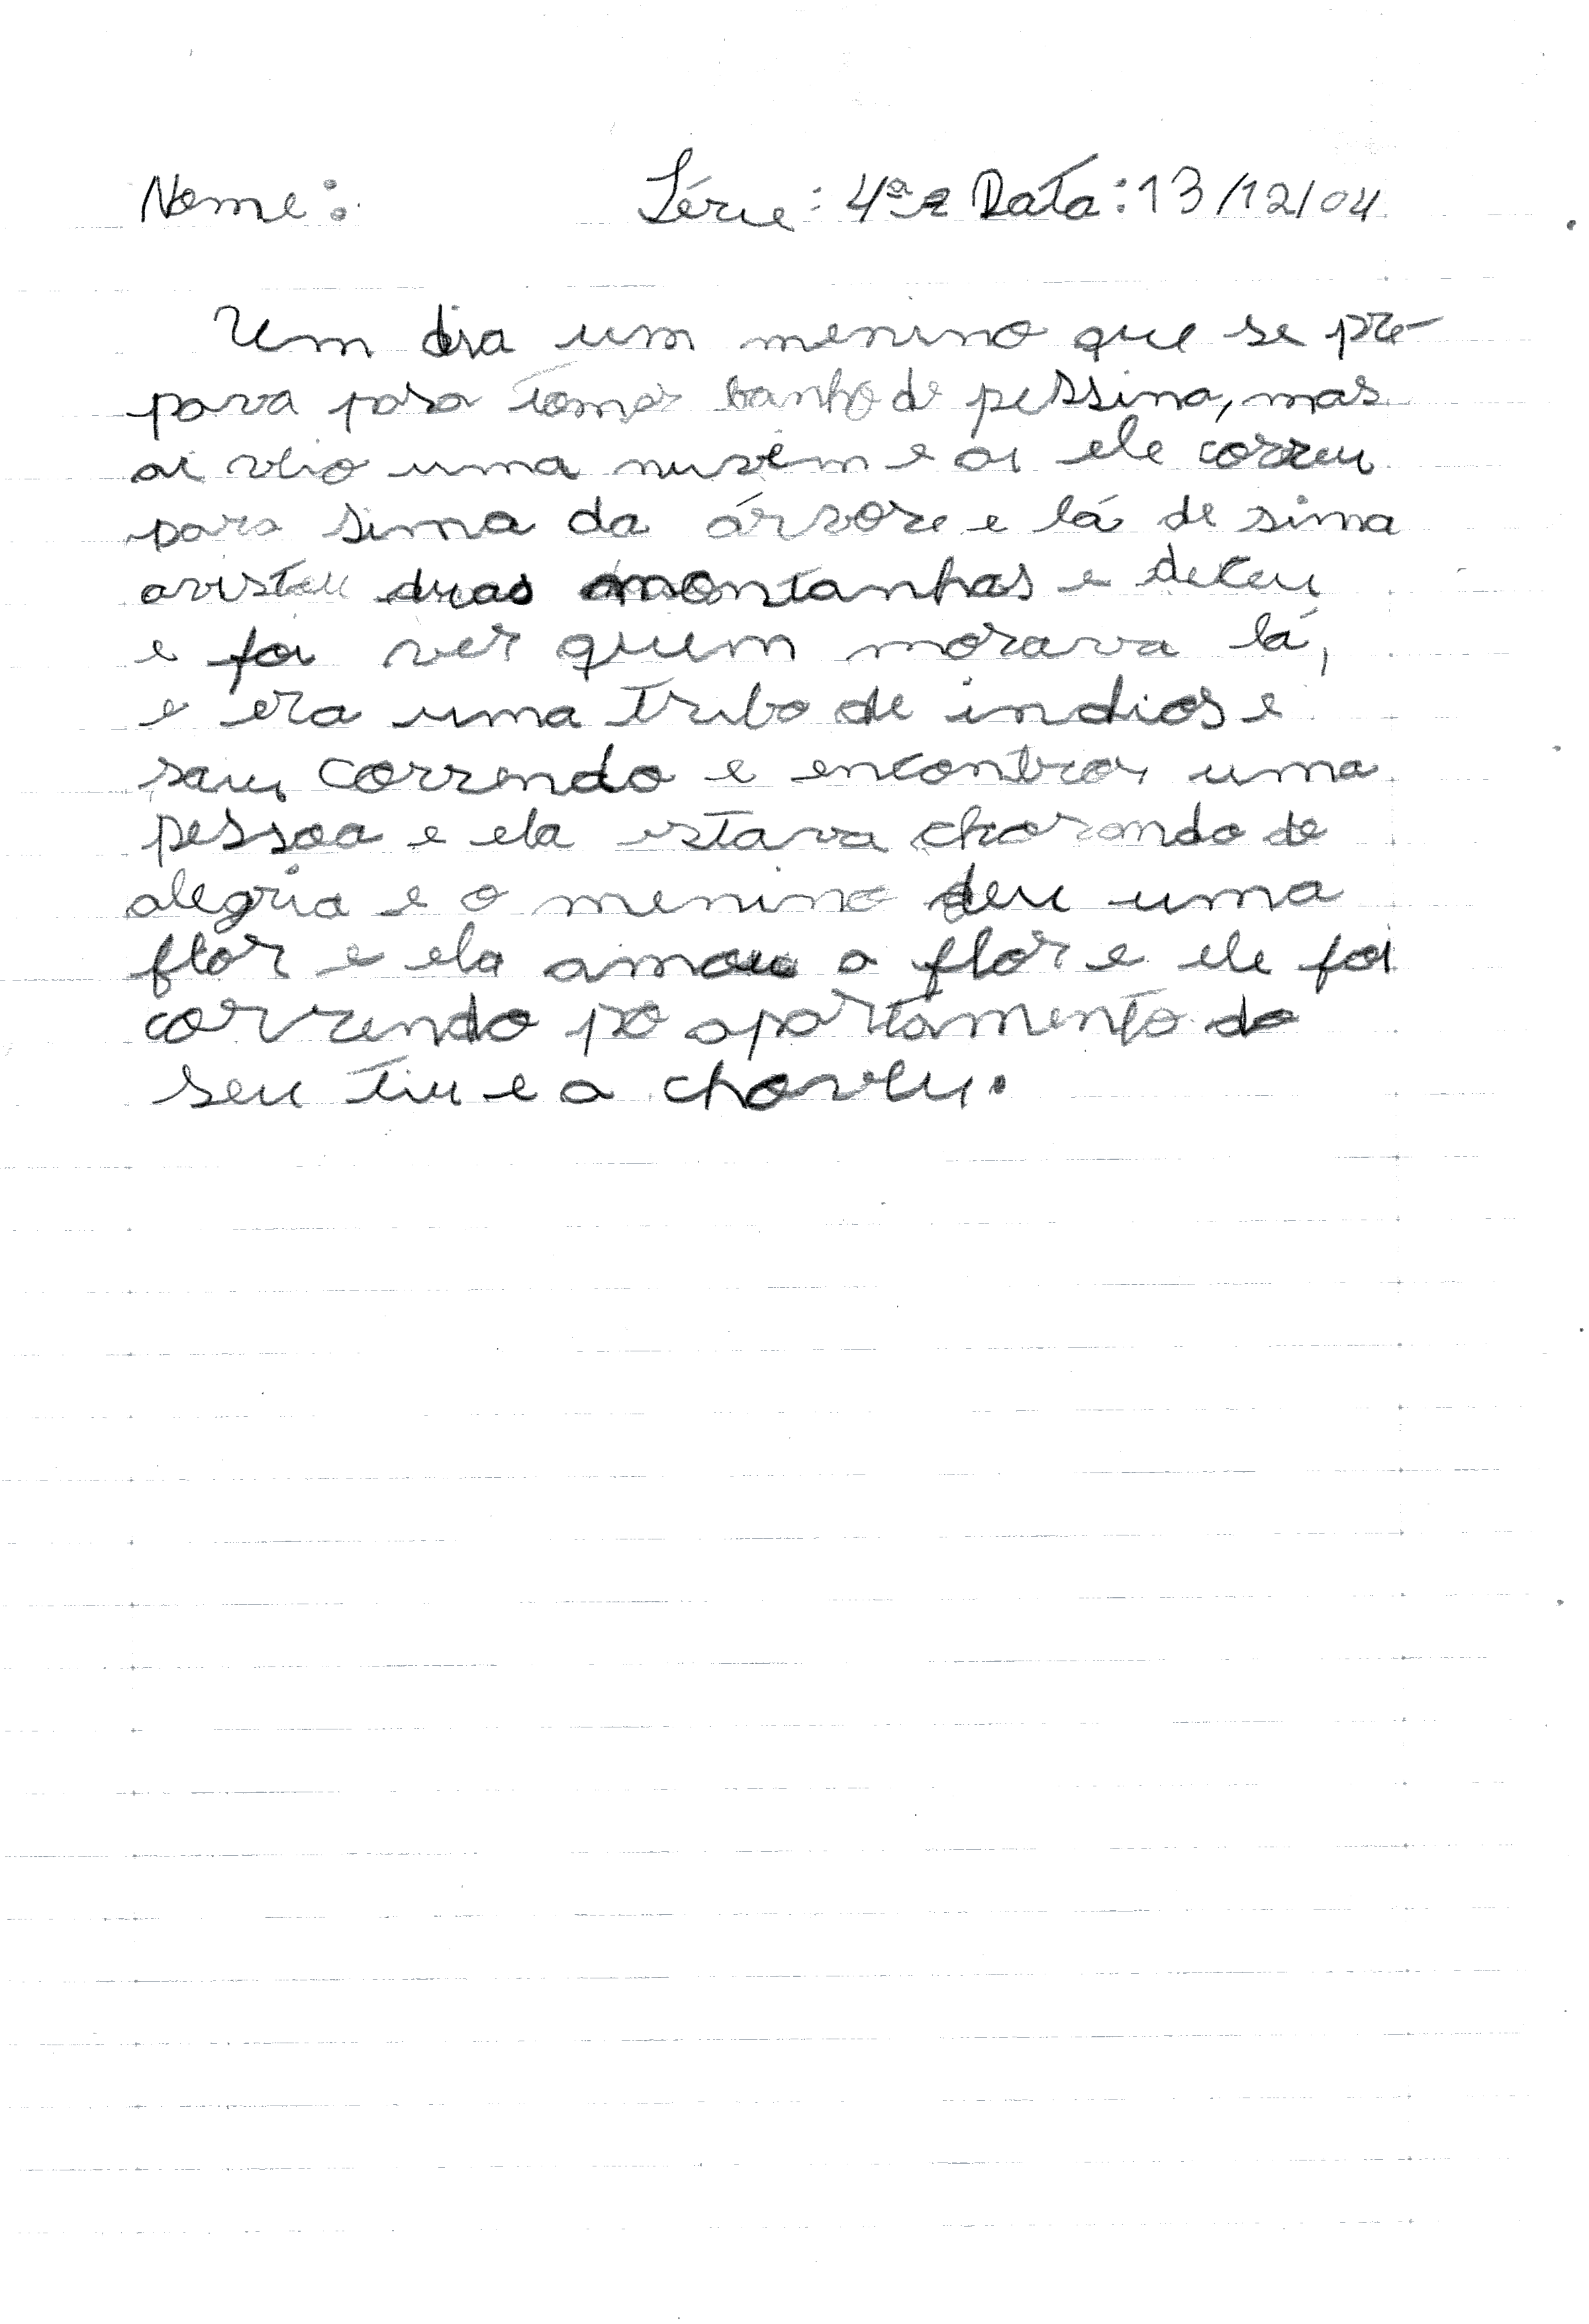 Nome: Série: 4ª Data: 13/12/04
Um dia um menino que se pre-
pava para tomar banho de pessina, mas
ai veio uma nuvem e ai ele correu
para sima da árvore e lá de sima
avistou duas montanhas e deceu
e foi ver quem morava lá,
e era uma tribo de indios e
saiu correndo e encontrou uma
pessoa e ela estava chorando de
alegria e o menino deu uma
flor e ela amou a flor e ele foi
correndo po apartamento do
seu tiu e a choveu.